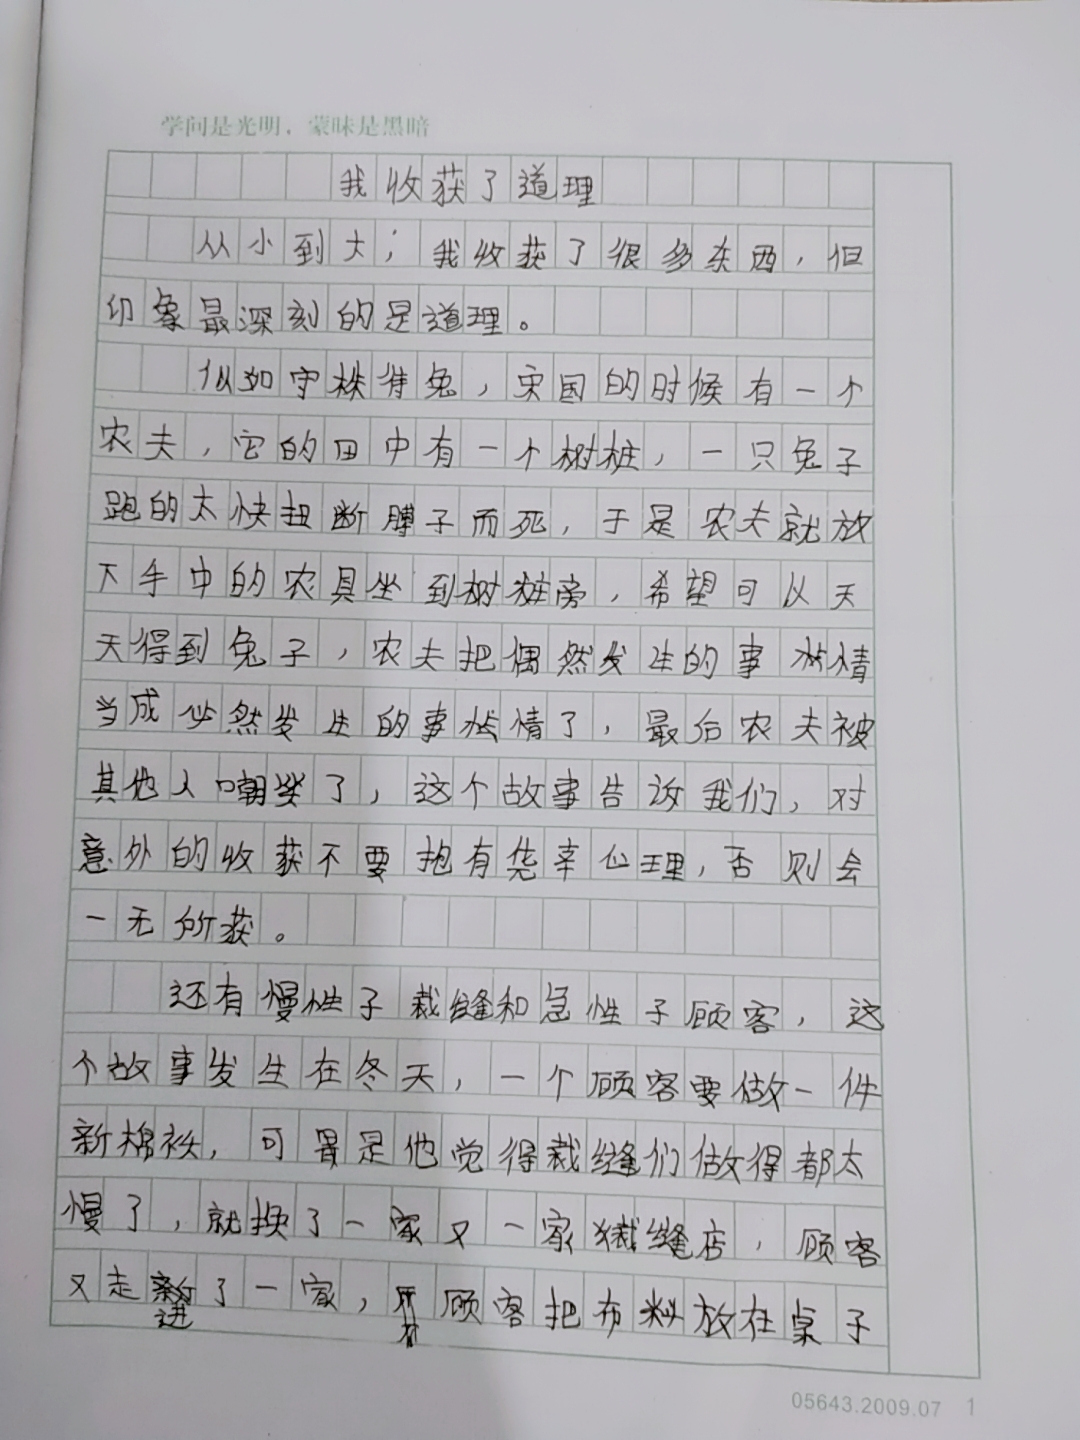 学问是光明，蒙昧是黑暗
我收获了道理
从小到大；我收获了很多东西，但
印象最深刻的是道理。
似如守株待兔，宋国的时候有一个
农夫，它的田中有一个树桩，一只兔子
跑的太快扭断脖子而死，于是农夫就放
下手中的农具坐到树桩旁，希望可以天
天得到兔子，农夫把偶然发生的事情
当成必然发生的事情了，最后农夫被
其他人嘲笑了，这个故事告诉我们，对
意外的收获不要抱有侥幸心理，否则会
一无所获。
还有慢性子裁缝和急性子顾客，这
个故事发生在冬天，一个顾客要做一件
新棉袄，可是他觉得裁缝们做得都太
慢了，就换了一家又一家裁缝店，顾客
又走进了一家，顾客把布料放在桌子
05643.2009.07 1